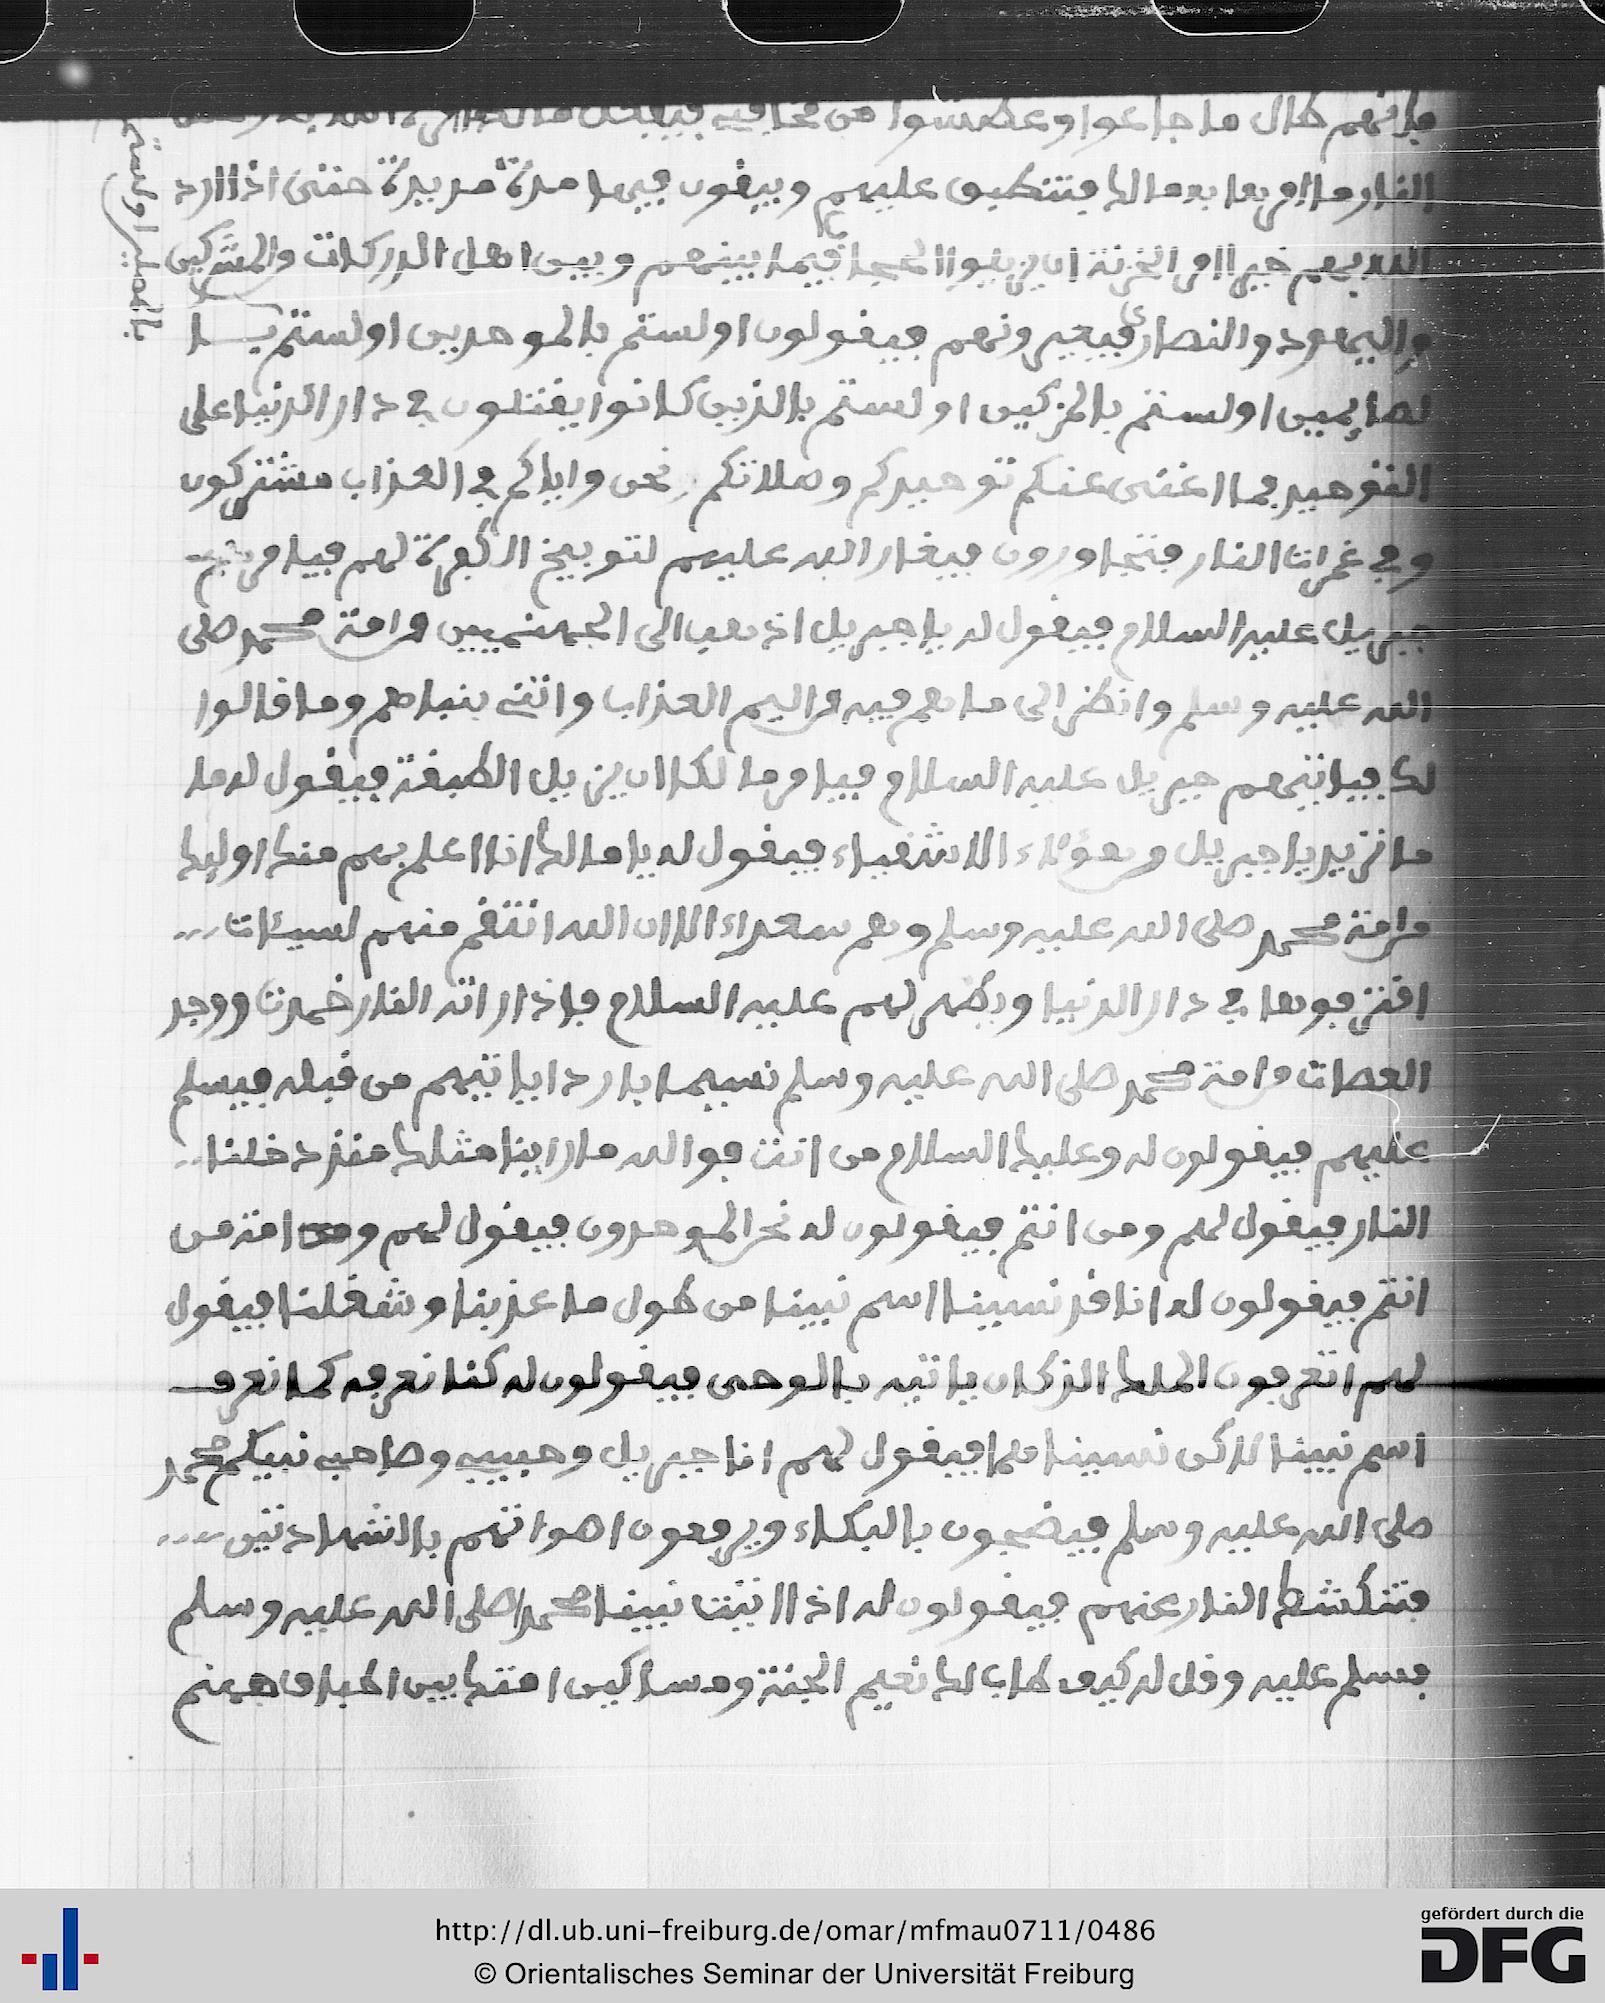 فإنهم طال ما جاعوا وعطشوا من مخافيه
النار ما امر بها به مالك فتنطبق عليهم ويبقون فيها مدة مديدة حتى اذا اراد
الله بهم خيرا امر الخزنة ان يزيقوا الحجاب فيما بينهم وبين اهل الدركات والمشركين
واليهود والنصارى فيعيرونهم فيقولون اولستم بالموحدين اولستم با
لصائمين اولستم بالمزكين اولستم بالذين كانوا يقتلون في دار الدنيا على
التوحيد فما اغنى عنكم توحيدكم وصلاتكم نحن واياكم في العذاب مشتركون
وفي غمرات النار فتجاورون فيغار الله عليهم لتوبيخ الكفرة لهم فيامر
جبريل عليه السلام فيقول له يا جبريل اذهب الى الجهنميين من امة محمد صلى
الله عليه وسلم وانظر الى ما هم فيه من اليم العذاب واتني بنباهم وما قالوا
لك فياتيهم جبريل عليه السلام فيامر مالكا ان يزيل الطبقة فيقول له ما
ما تريد يا جبريل من هؤلاء الاشقياء فيقول له يا مالك انا اعلم بهم منك اوليك
من امة محمد صلى الله عليه وسلم وهم سعداء الا ان الله انتقم منهم لسيئات
اقترفوها في دار الدنيا ويظهر لهم عليه السلام فاذا راته النار خمدت ووجد
العصات من امة محمد صلى الله عليه وسلم نسيما باردا ياتيهم من قبله فيسلم
عليهم فيقولون له وعليك السلام من انت فوالله ما راينا مثلك منذ دخلنا
النار فيقول لهم ومن انتم فيقولون له نحن الموحدون فيقول لهم ومن امة من
انتم فيقولون له انا قد نسينا اسم نبينا من طول ما عذبنا وشغلنا فيقول
لهم اتعرفون الملك الذي كان ياتيه بالوحي فيقولون له كنا نعرفه كما نعرف
اسم نبينا لاكن نسيناهما فيقول لهم انا جبريل وحبيبه وصاحبه نبيكم محمد
صلى الله عليه وسلم فيضجون بالبكاء ويرفعون اصواتهم بالشهادتين
فتنكشط النار عنهم فيقولون له اذا اتيت نبينا محمدا صلى الله عليه وسلم
فسلم عليه وقل له كيف طاب لك نعيم الجنة ومساكين امتك بين اطباق جهنم
بالمصلين اولستم
http://dl.ub.uni-freiburg.de/omar/mfmau0711/0486
© Orientalisches Seminar der Universität Freiburg
gefördert durch die
DFG